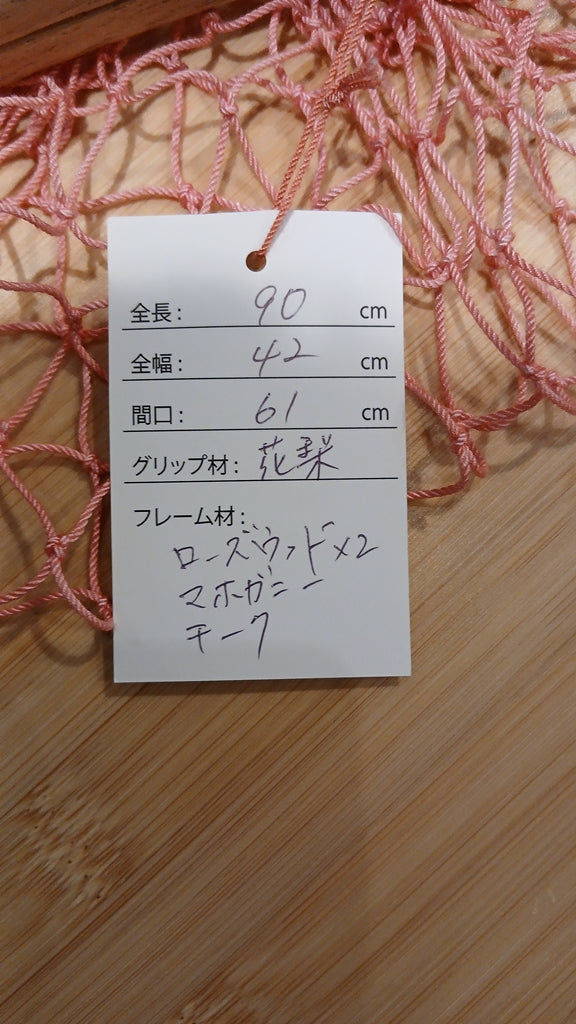 全長: 90 cm
全幅: 42 cm
間口: 61 cm
グリップ材: 花梨
フレーム材:
ローズウッド×2
マホガニー
チーク